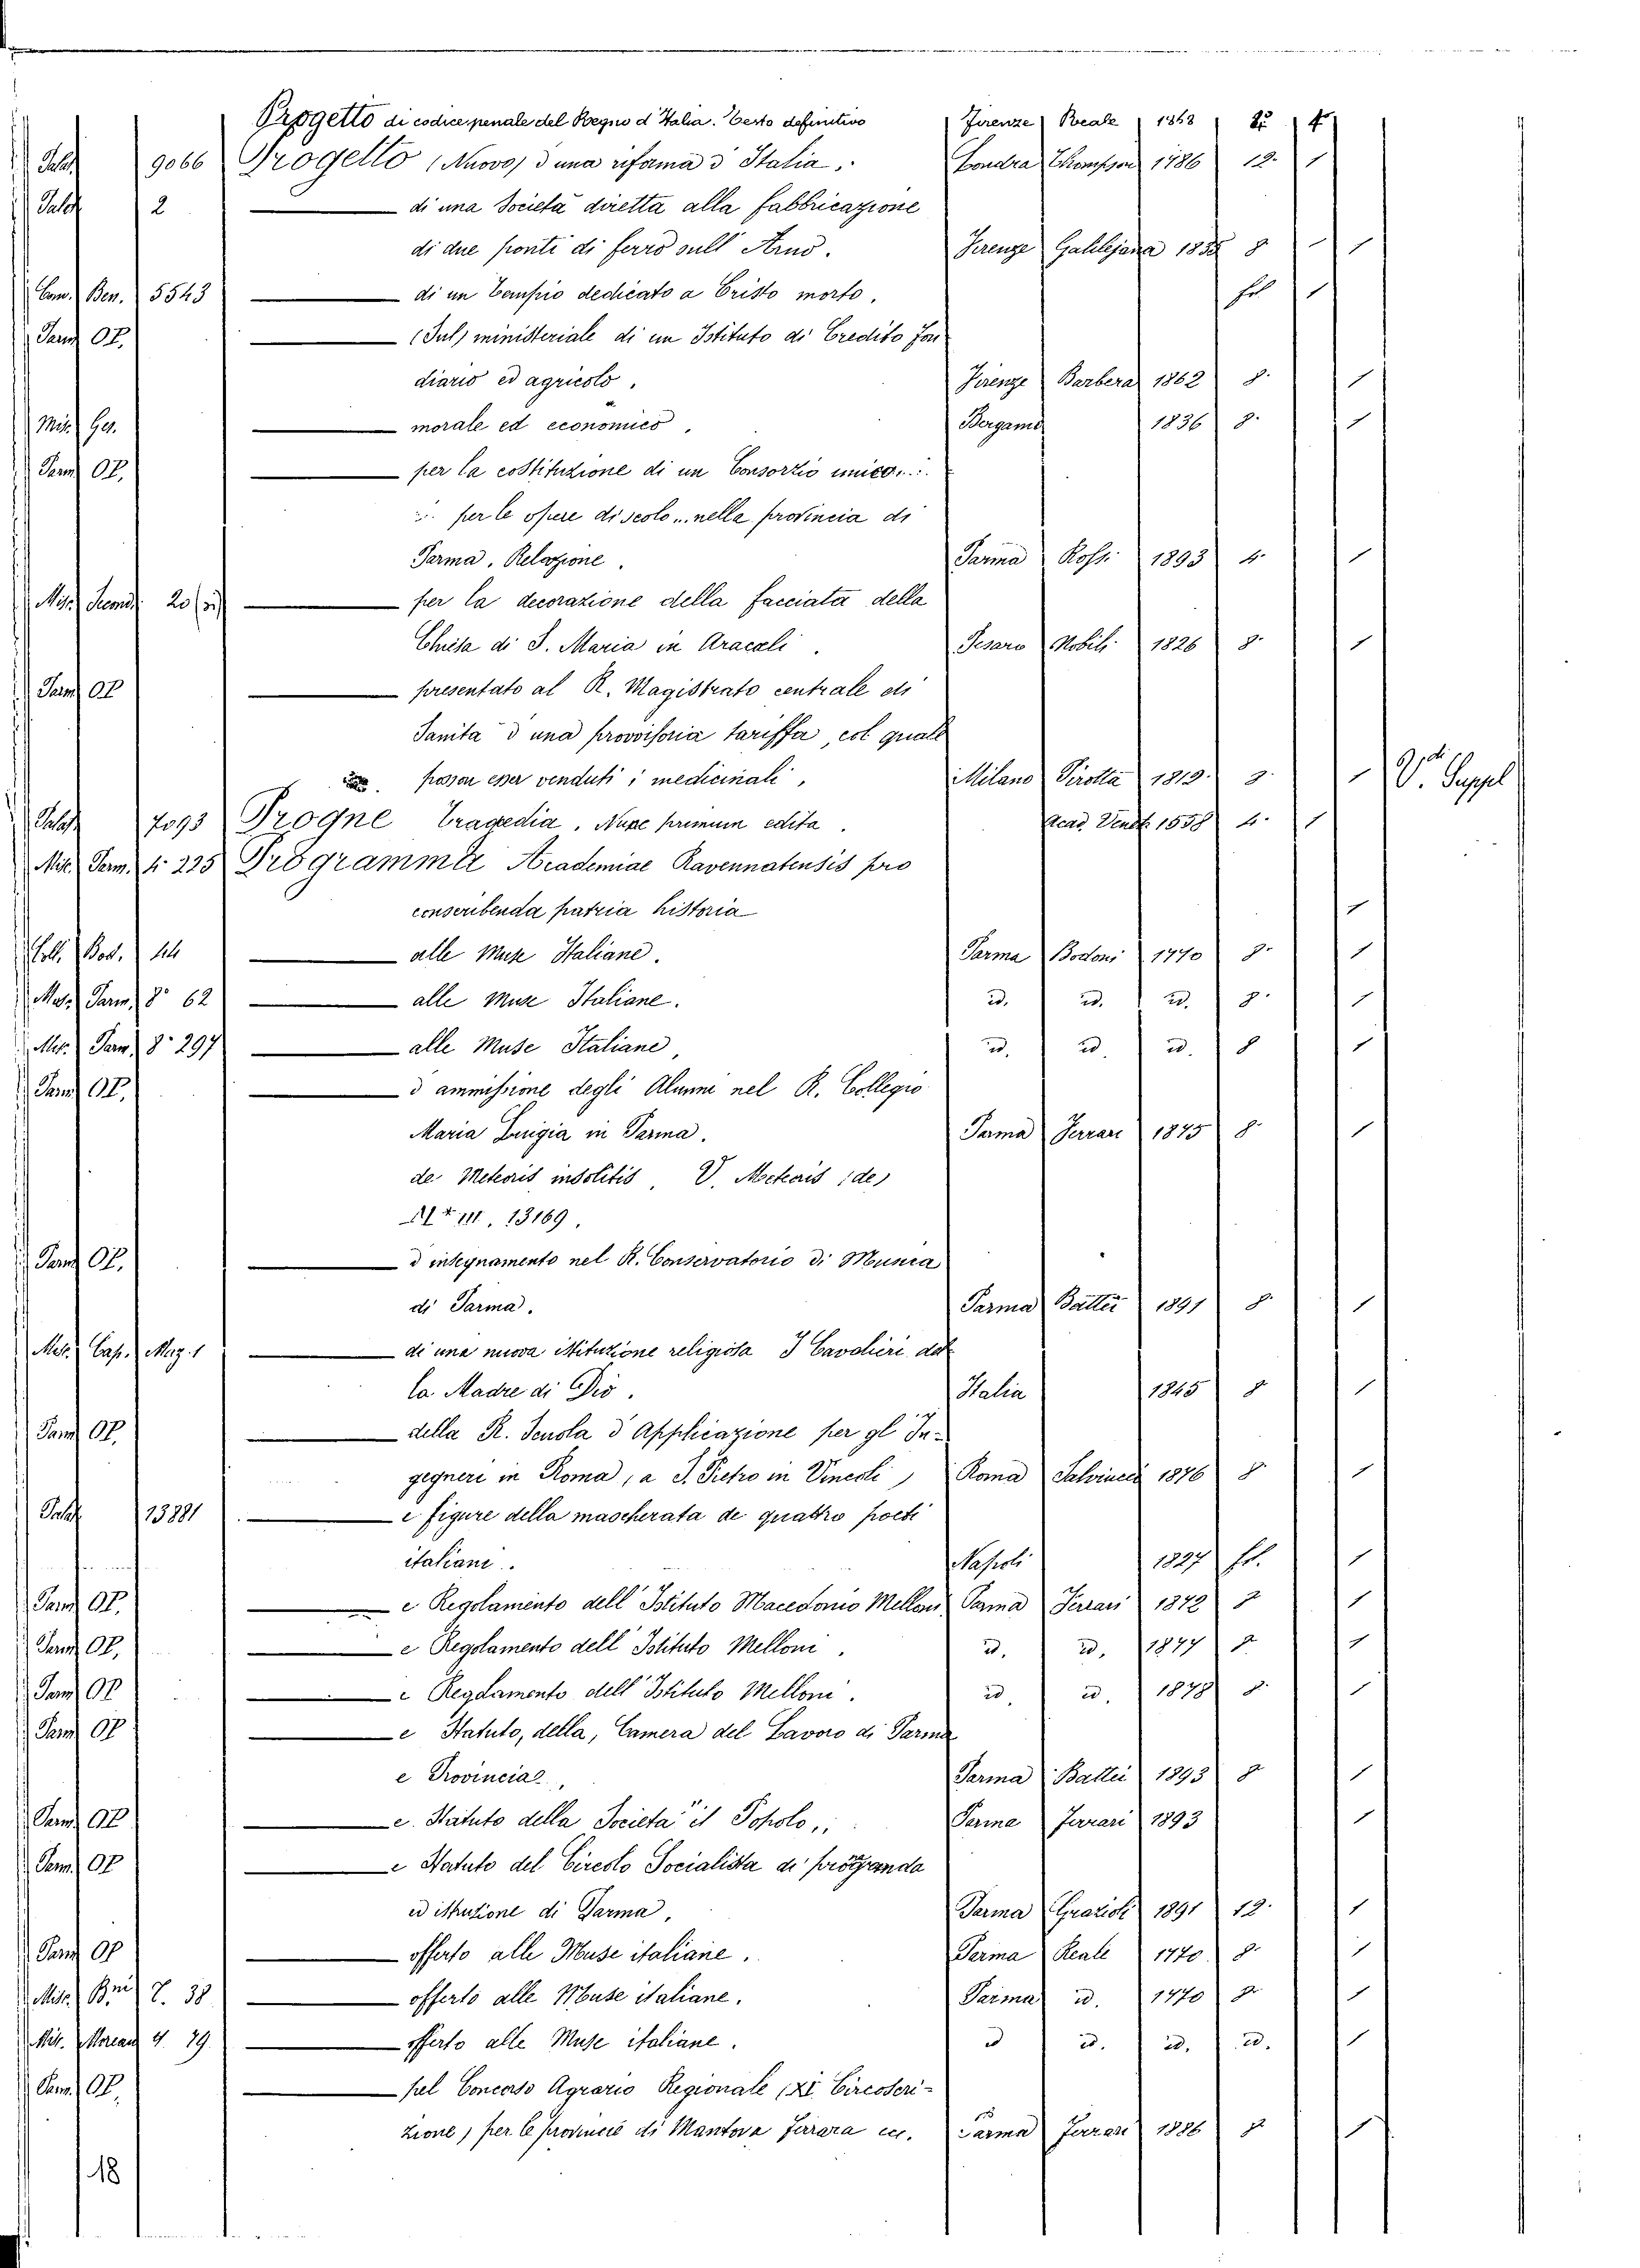 Progetto di codice penale del Regno d'Italia. Testo definitivo Firenze Reale 1868 4
Palat. 9066 Progetto (Nuovo) d'una riforma d'Italia. Londra Thompson 1786 12. 1
Palat. 2 — di una Società diretta alla fabbricazione
di due ponti di ferro sull'Arno. Firenze Galilejana 1835 8 1
Cam. Ben. 5543 — di un Tempio dedicato a Cristo morto. fol 1
Parm OP. — (Sul) ministeriale di un Istituto di Credito fon
diario ed agricolo. Firenze Barbera 1862 8. 1
Misc. Ger. — morale ed economico. Bergamo 1836 8. 1
Parm OP. — per la costituzione di un Consorzio unico...
... per le opere di scolo... nella provincia di
Parma. Relazione. Parma Rossi 1893 4. 1
Misc. 20 — per la decorazione della facciata della
Chiesa di S. Maria in Aracæli. Pesaro Nobili 1826 8. 1
Parm OP — presentato al R. Magistrato centrale di
Sanità d'una provvisoria tariffa, col quale
posson esser venduti i medicinali. Milano Pirotta 1819. 1 V. Suppel
Palat 7093 Progne Tragedia. Nunc primum edita. Acad. Venet. 1558 4. 1
Misc. Parm. 4° 225 Programma Academiae Ravennatensis pro
conscribenda patria historia 1
Coll. Bod. — alle Muse Italiane. Parma Bodoni 1770 8. 1
Misc. Parm. 8° 62 — alle Muse Italiane. id. id. id. 8. 1
Misc. Parm. 8° 297 — alle Muse Italiane, id. id. id. 8 1
Parm OP. — d'ammissione degli Alunni nel R. Collegio
Maria Luigia in Parma. Parma Ferrari 1875 8. 1
de Meteoris insolitis, V. Meteoris (de)
III. 13169.
Parm OP. — d'insegnamento nel R. Conservatorio di Musica
di Parma. Parma Battei 1891 8. 1
Misc. Cap. Mag. 1 — di una nuova istituzione religiosa I Cavalieri del
la Madre di Dio. Italia 1845 8 1
Parm OP. — della R. Scuola d'Applicazione per gl'In-
gegneri in Roma, a S. Pietro in Vincoli, Roma Salviucci 1876 8 1
Palat 13881 — e figure della mascherata de' quattro poeti
italiani. Napoli 1827 fol. 1
Parm OP. — e Regolamento dell'Istituto Macedonio Melloni Parma Ferrari 1872 8 1
Parm OP. — e Regolamento dell'Istituto Melloni. id. id. 1877 8 1
Parm OP — e Regolamento dell'Istituto Melloni. id. id. 1878 8. 1
Parm OP — e Statuto, della, Camera del Lavoro di Parma
e Provincia. Parma Battei 1893 8 1
Parm OP — e. Statuto della Società "il Popolo". Parma Ferrari 1893 1
Parm OP — e Statuto del Circolo Socialista di propaganda
ed istruzione di Parma. Parma Grazioli 1891 12. 1
Parm OP — offerto alle Muse italiane. Parma Reale 1770 8. 1
Misc. 7. 38 — offerto alle Muse italiane. Parma id. 1770 1
Mis. Moreau 4. 79. — offerto alle Muse italiane. id id. id. id. 1
Parm. OP. — pel Concorso Agrario Regionale (XI Circoscri-
zione) per le provincie di Mantova Ferrara ecc. Parma Ferrari 1886 8 1
18